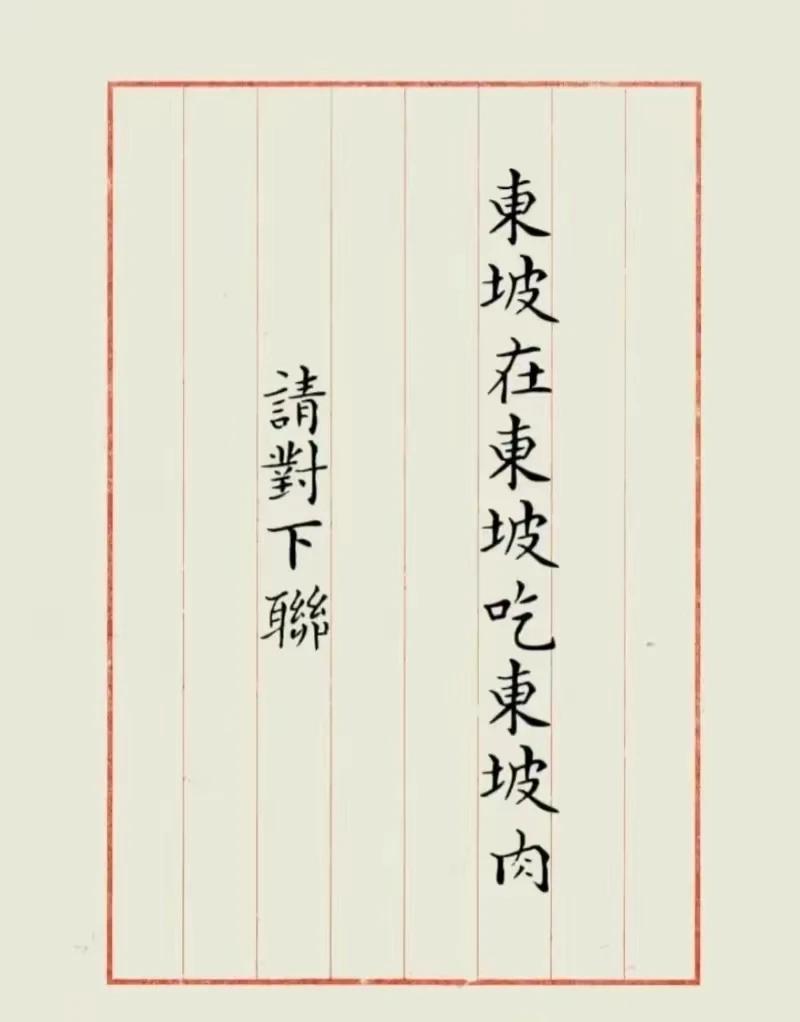 東坡在東坡吃東坡肉
請對下聯